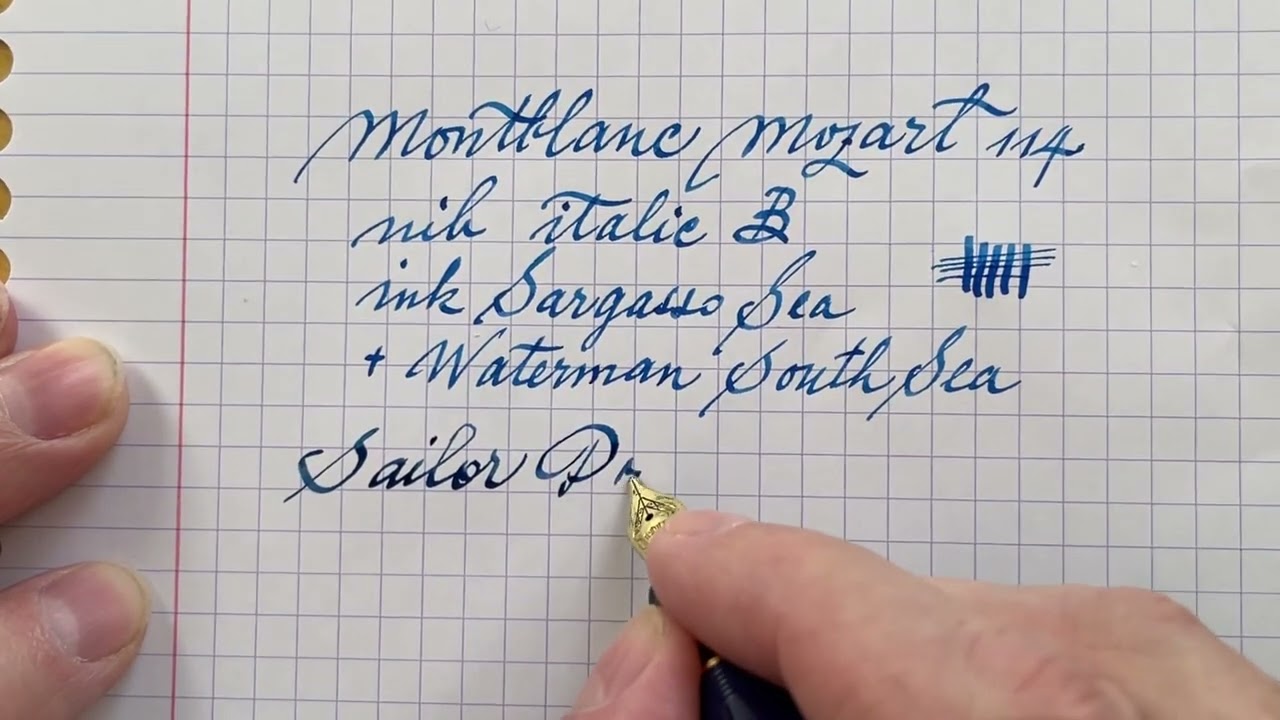 Montblanc Mozart 114
nib italic B
ink Sargasso Sea
+ Waterman South Sea
Sailor Pr